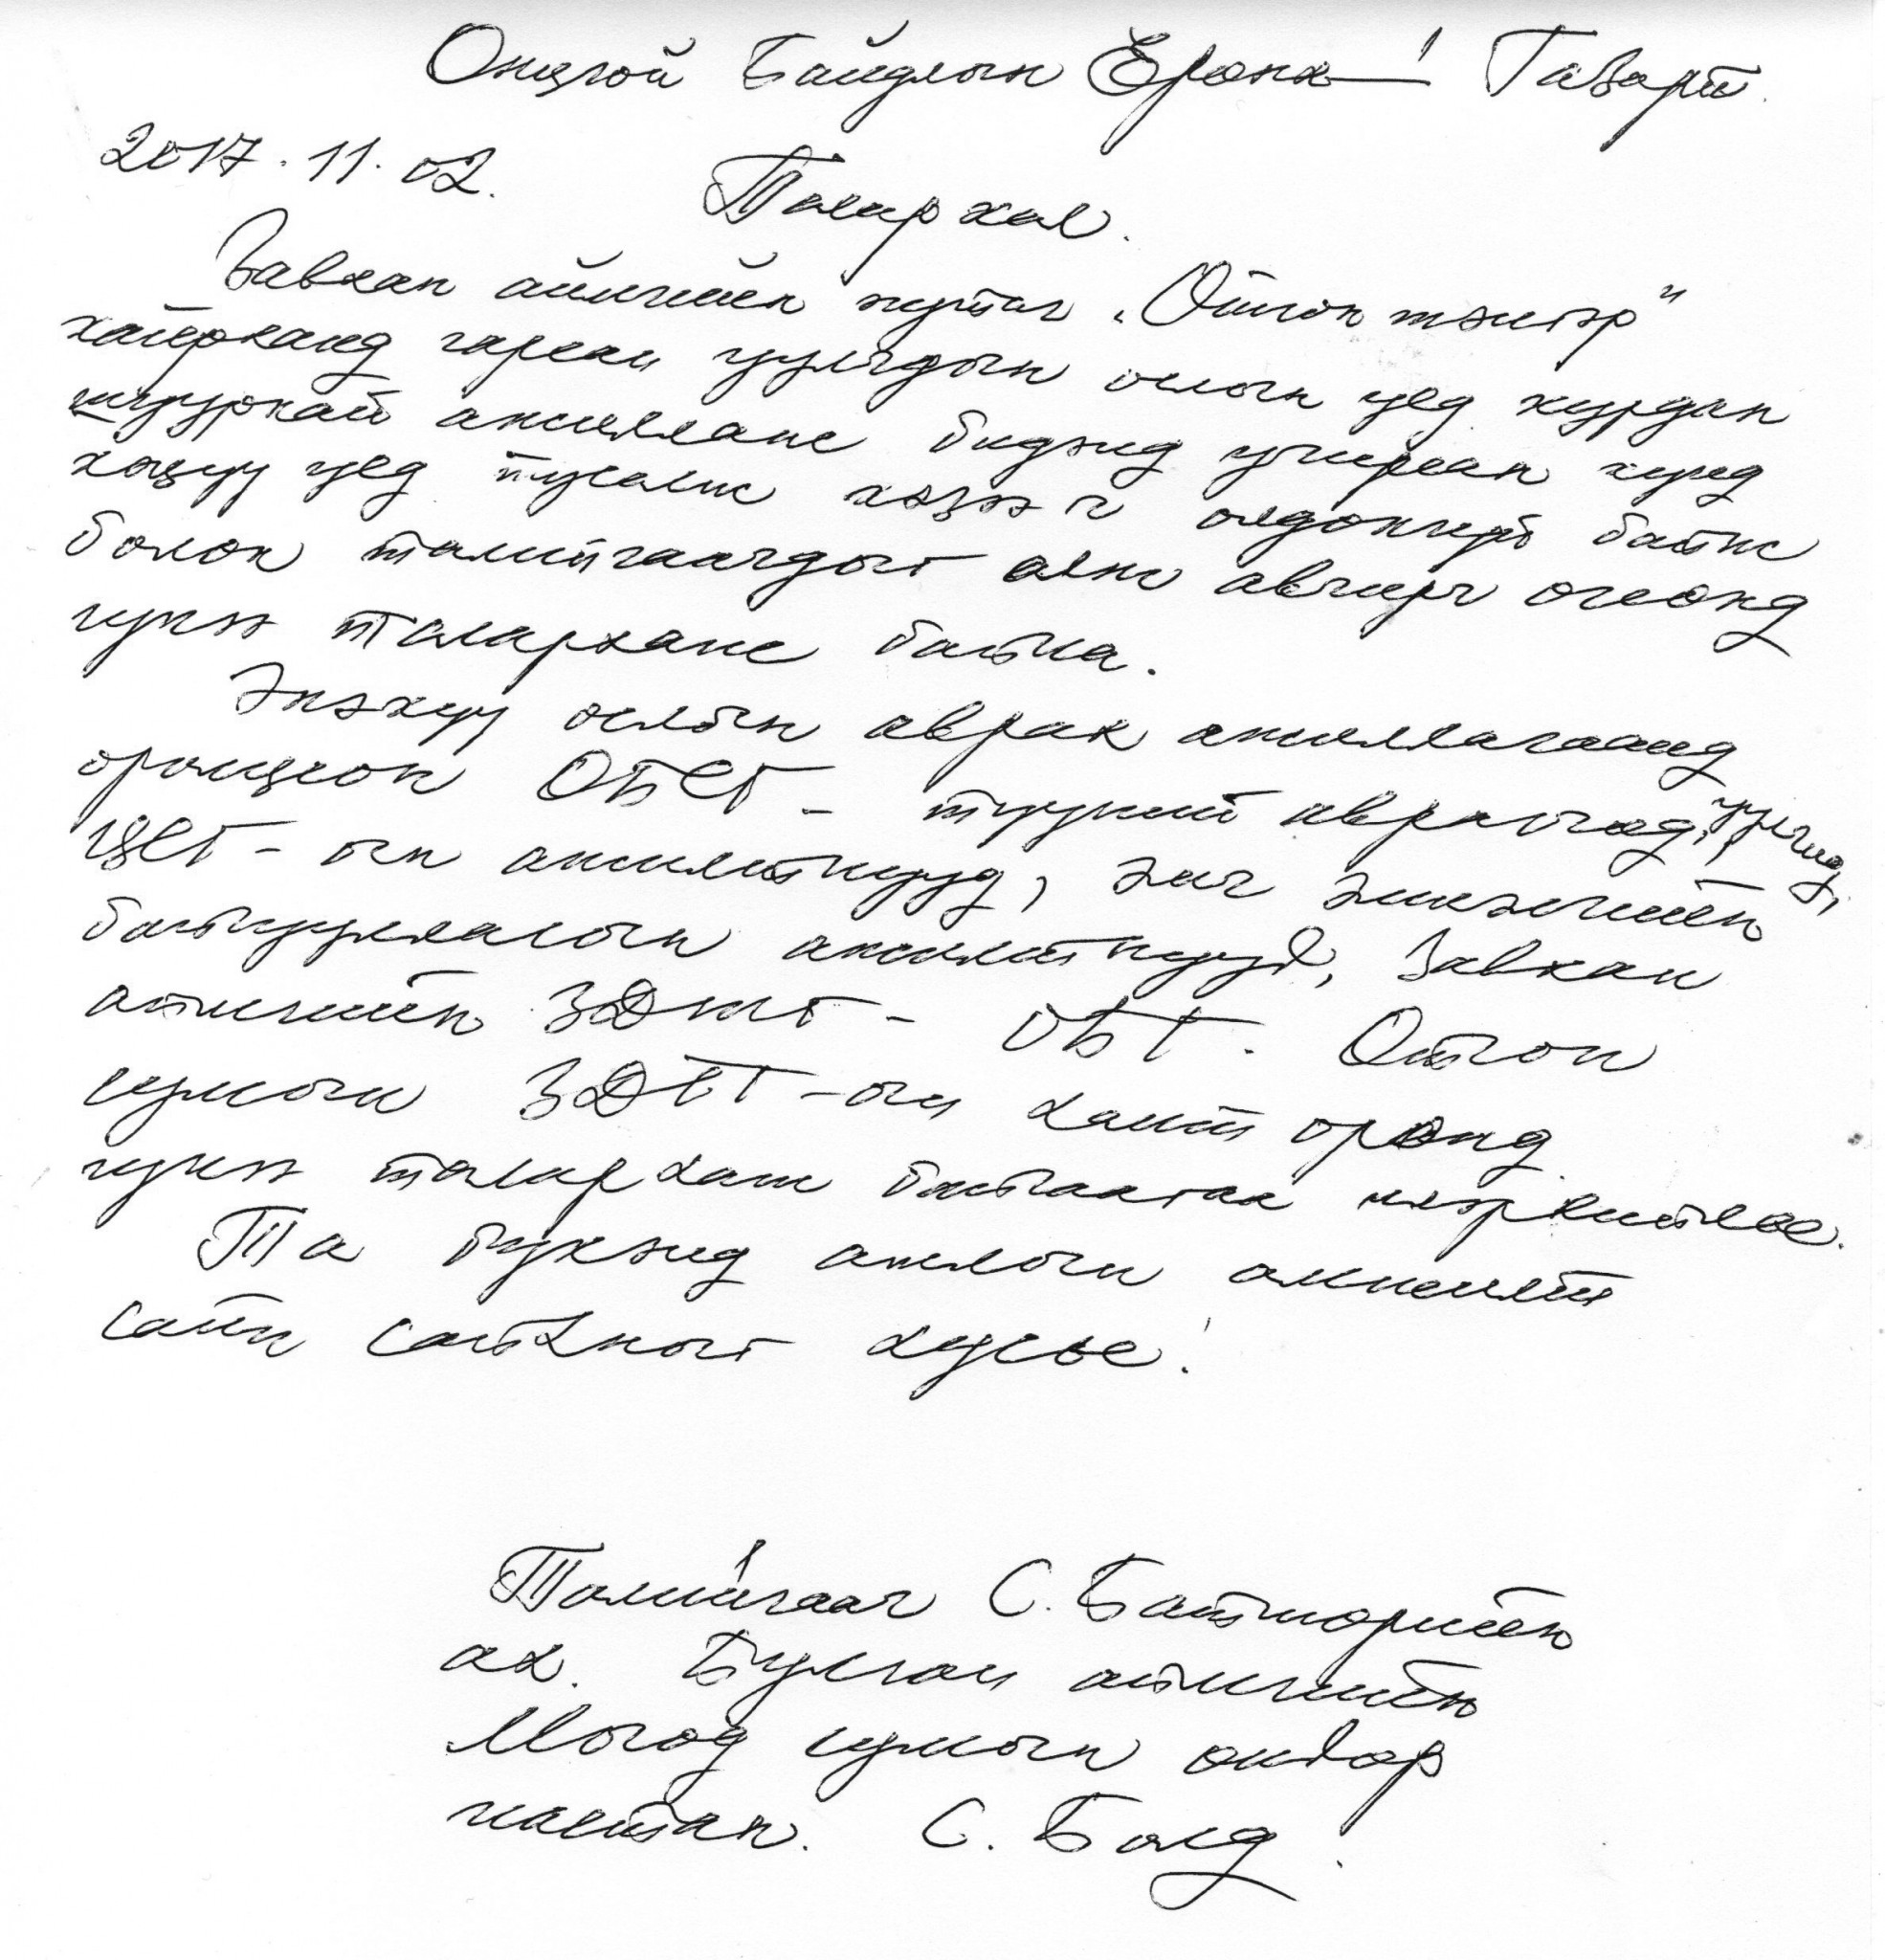 Онцгой Байдлын Ерөнхий Газарт.
2017.11.02.
Талархал.
Завхан аймгийн нутаг "Отгон тэнгэр"
хайрханд гарсан уулчдын ослын үед хурдан
шуурхай ажиллаж бидэнд учирсан хүнд
хэцүү үед тусалж хэзээ ч олдохгүй байж
болох талийгаачдыг олж авчирч өгсөнд
гүнээ талархаж байна.
Энэхүү ослын аврах ажиллагаанд
оролцсон ОБЕГ - түүний аврагчид, уулчид,
ЦЕГ-ын ажилтнууд, эмч эмнэлгийн
байгууллагын ажилтнууд, Завхан
аймгийн ЗДТГ - ОБГ. Отгон
сумын ЗДТГ-ын хамт олонд
гүнээ талархаж байгаагаа илэрхийлье.
Та бүхэнд ажлын амжилт
сайн сайхныг хүсье!
Талийгаач С. Батмөрийн
ах. Булган аймгийн
Могод сумын өндөр
настан. С. Болд.